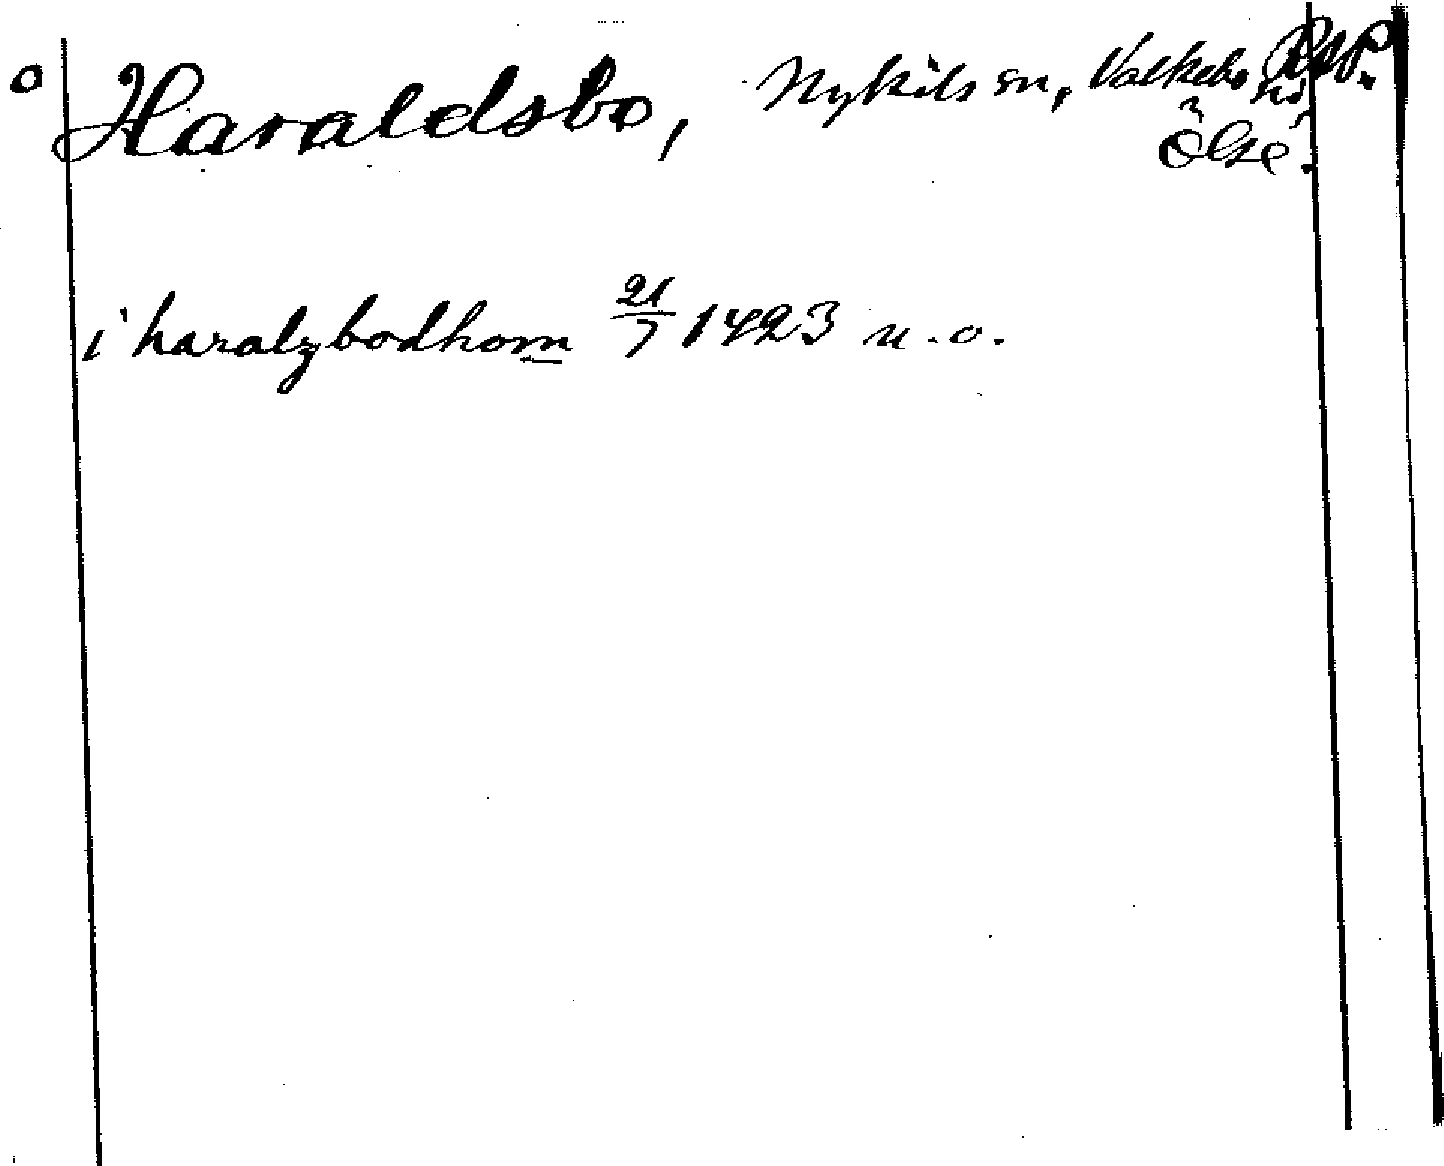 o Haraldsbo, Nykils sn, Valkebo hd
Ölse.
i haralzbodhom 21/7 1423 u.o.